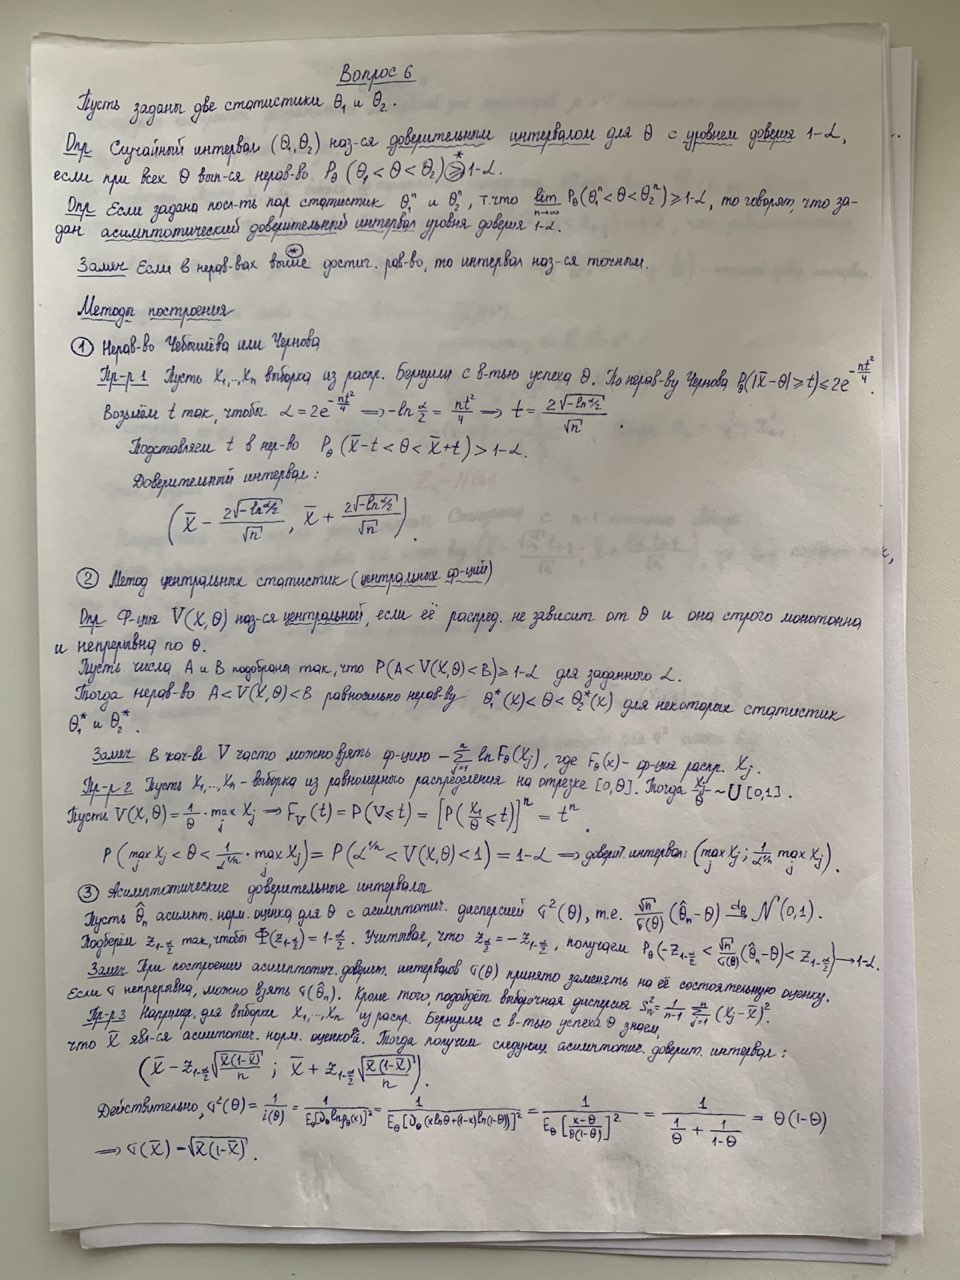 Вопрос 6
Пусть заданы две статистики θ₁ и θ₂.
Опр Случайный интервал (θ₁, θ₂) наз-ся доверительным интервалом для θ с уровнем доверия 1-α,
если при всех θ вып-ся нерав-во P_θ (θ₁ < θ < θ₂) ≥* 1-α.
Опр Если задана посл-ть пар статистик θ₁ⁿ и θ₂ⁿ, т.что lim_{n→∞} P_θ(θ₁ⁿ < θ < θ₂ⁿ) ≥ 1-α, то говорят, что за-
дан асимптотический доверительный интервал уровня доверия 1-α.
Замеч Если в нерав-вах выше * достиг. рав-во, то интервал наз-ся точным.
Методы построения
① Нерав-во Чебышёва или Чернова
Пр-р 1 Пусть X₁,..,Xₙ выборка из распр. Бернулли с в-тью успеха θ. По нерав-ву Чернова P_θ(|X̄ - θ| ≥ t) ≤ 2e^{-nt²/4}.
Возьмём t так, чтобы α = 2e^{-nt²/4} ⟹ -ln α/2 = nt²/4 ⟹ t = 2√(-ln α/2)/√n.
Подставляем t в нер-во P_θ (X̄ - t < θ < X̄ + t) > 1-α.
Доверительный интервал:
(X̄ - 2√(-ln α/2)/√n, X̄ + 2√(-ln α/2)/√n).
② Метод центральных статистик (центральных ф-ций)
Опр Ф-ция V(X, θ) наз-ся центральной, если её распред. не зависит от θ и она строго монотонна
и непрерывна по θ.
Пусть числа A и B подобраны так, что P(A < V(X,θ) < B) ≥ 1-α для заданного α.
Тогда нерав-во A < V(X,θ) < B равносильно нерав-ву θ₁*(X) < θ < θ₂*(X) для некоторых статистик
θ₁* и θ₂*.
Замеч В кач-ве V часто можно взять ф-цию -∑_{j=1}^{n} ln F_θ(X_j), где F_θ(x) - ф-ция распр. X_j.
Пр-р 2 Пусть X₁,..,Xₙ - выборка из равномерного распределения на отрезке [0,θ]. Тогда X_j/θ ~ U[0,1].
Пусть V(X,θ) = 1/θ · max_j X_j ⟹ F_V(t) = P(V ≤ t) = [P(X₁/θ ≤ t)]ⁿ = tⁿ.
P(max_j X_j < θ < 1/α^{1/n} · max_j X_j) = P(α^{1/n} < V(X,θ) < 1) = 1-α ⟹ доверит. интервал: (max_j X_j ; 1/α^{1/n} max_j X_j).
③ Асимптотические доверительные интервалы
Пусть θ̂ₙ асимпт. норм. оценка для θ с асимптотич. дисперсией σ²(θ), т.е. √n/σ(θ) (θ̂ₙ - θ) →^{d_θ} N(0,1).
Подберём z_{1-α/2} так, чтобы Φ(z_{1-α/2}) = 1-α/2. Учитывая, что z_{α/2} = -z_{1-α/2}, получаем P_θ(-z_{1-α/2} < √n/σ(θ) (θ̂ₙ - θ) < z_{1-α/2}) → 1-α.
Замеч При построении асимптотич. доверит. интервалов σ(θ) принято заменять на её состоятельную оценку.
Если σ непрерывна, можно взять σ(θ̂ₙ). Кроме того, подойдёт выборочная дисперсия Sₙ² = 1/(n-1) ∑_{j=1}^{n} (X_j - X̄)².
Пр-р 3 Например, для выборки X₁,..,Xₙ из распр. Бернулли с в-тью успеха θ знаем,
что X̄ явл-ся асимптотич. норм. оценкой. Тогда получим следующ. асимптотич. доверит. интервал:
(X̄ - z_{1-α/2} √(X̄(1-X̄))/n ; X̄ + z_{1-α/2} √(X̄(1-X̄))/n).
Действительно, σ²(θ) = 1/i(θ) = 1/E_θ[∂_θ ln p_θ(x)]² = 1/E_θ[∂_θ(x ln θ + (1-x) ln(1-θ))]² = 1/E_θ[(x-θ)/(θ(1-θ))]² = 1/(1/θ + 1/(1-θ)) = θ(1-θ)
⟹ σ(X̄) = √(X̄(1-X̄)).